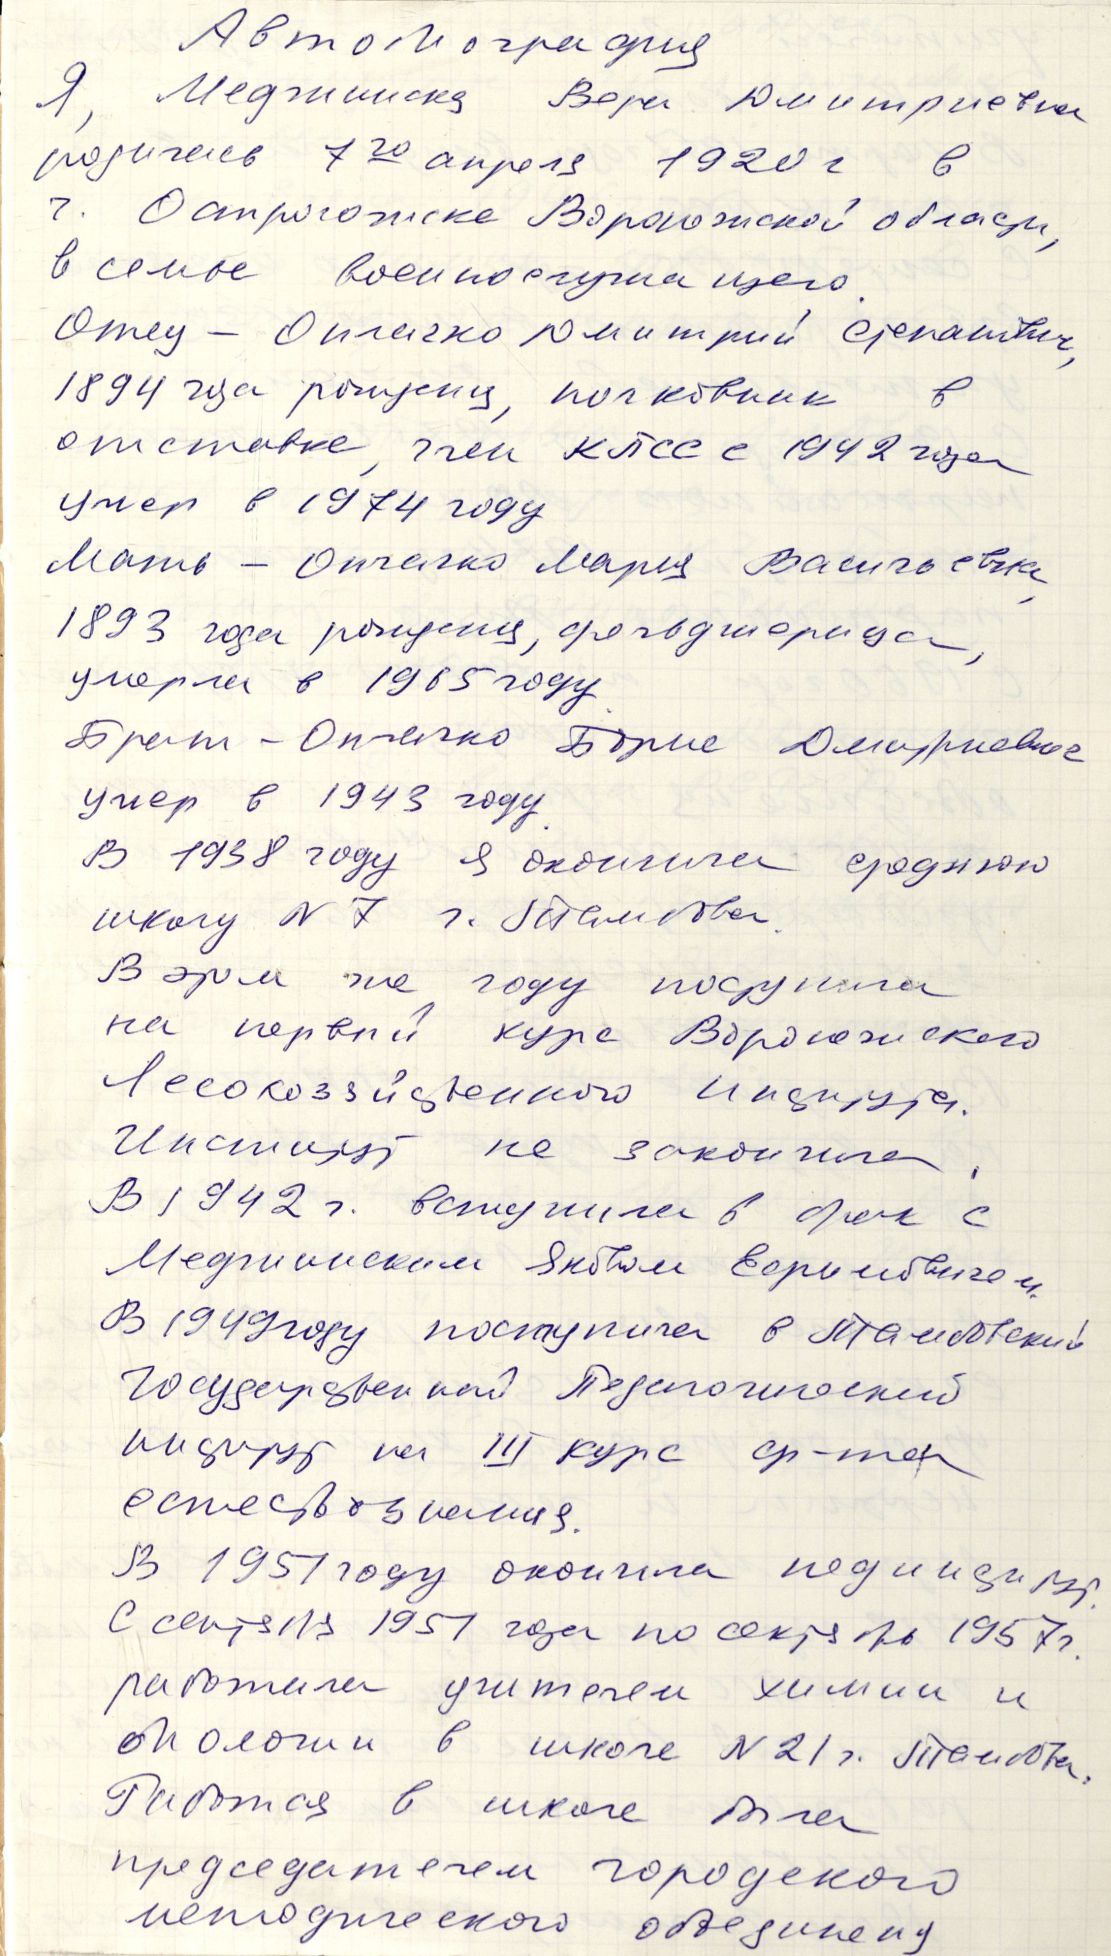 Автобиография
Я, Меджинская Вера Дмитриевна
родилась 7го апреля 1920 г в
г. Острогожске Воронежской области,
в семье военнослужащего.
Отец – Опалчко Дмитрий Степанович,
1894 года рождения, полковник в
отставке, член КПСС с 1942 года
умер в 1974 году
Мать – Мария Васильевна,
1893 года рождения, фельдшерица,
умерла в 1965 году.
Брат – Борис Дмитриевич
умер в 1943 году.
В 1938 году я окончила среднюю
школу N 7 г. Тамбова.
В этом же году поступила
на первый курс Воронежского
Лесохозяйственного института.
Институт не закончила.
В 1942 г. вступила в брак с
Меджинским Яковом Ефимовичем.
В 1949 году поступила в Тамбовский
Государственный Педагогический
институт на III курс ф-та
естествознания.
В 1951 году окончила пединститут.
С сентября 1951 года по сентябрь 1957 г.
работала учителем химии и
биологии в школе N 21 г. Тамбова.
Работая в школе была
председателем городского
методического объединения